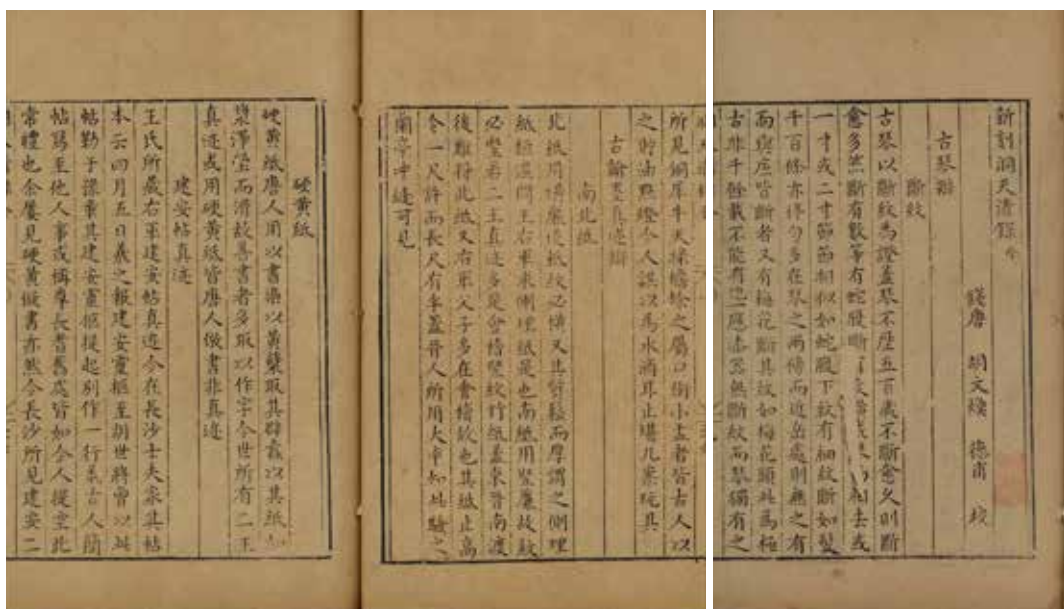 新刻洞天清錄
錢唐 胡文煥 德甫 校
古琴辯
斷紋
古琴以斷紋為證蓋琴不歷五百歲不斷愈久則斷
愈多然斷有數等有蛇腹斷 相去或
一寸或二寸節節相似如蛇腹下紋有細紋斷如髮
千百條亦停勻多在琴之兩傍而近岳處則無之有
面與底皆斷者又有梅花斷其紋如梅花頭此為極
古非千餘載不能有也應漆器無斷紋而琴獨有之
所見銅犀牛天祿蟾蜍之屬口銜小盂者皆古人以
之貯油點燈今人誤以為水滴耳止堪几案玩具
古翰墨真迹辯
南北紙
北紙用橫簾造紙紋必橫又其質鬆而厚謂之側理
紙桓溫問王右軍求側理紙是也南紙用竪簾紋
必竪若二王真迹多是會稽竪紋竹紙蓋東晉南渡
後難得北紙又右軍父子多在會稽故也其紙止高
今一尺許而長尺有半蓋晉人所用大率如此驗之
蘭亭中縫可見
硬黃紙
硬黃紙唐人用以書染以黃蘗取其辟蠹以其紙如
漿澤瑩而滑故善書者多取以作字今世所有二王
真迹或用硬黃紙皆唐人倣書非真迹
建安帖真迹
王氏所藏右軍建安帖真迹今在長沙士夫家其帖
本云四月五日羲之報建安靈柩至朔世將曾以此
帖勒于隸棠其建安靈柩提起別作一行蓋古人簡
帖寫至他人事或稱尊長者舊處皆如今人提空此
常禮也余屢見硬黃倣書亦然今長沙所見建安二